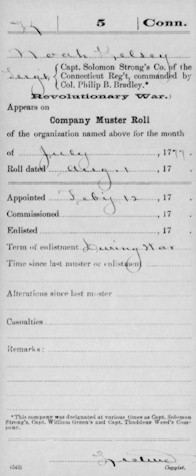 5 Conn.
Noah Kelsey
Sergt, Capt. Solomon Strong's Co. of the
Connecticut Reg't, commanded by
Col. Philip B. Bradley.*
(Revolutionary War.)
Appears on
Company Muster Roll
of the organization named above for the month
of July, 1779.
Roll dated Aug. 1, 17 .
Appointed Feby 12, 17 .
Commissioned, 17 .
Enlisted, 17 .
Term of enlistment During War
Time since last muster or enlistment
Alterations since last muster
Casualties
Remarks:
*This company was designated at various times as Capt. Solomon
Strong's, Capt. William Green's and Capt. Thaddeus Weed's Com-
pany.
(543) Copyist.